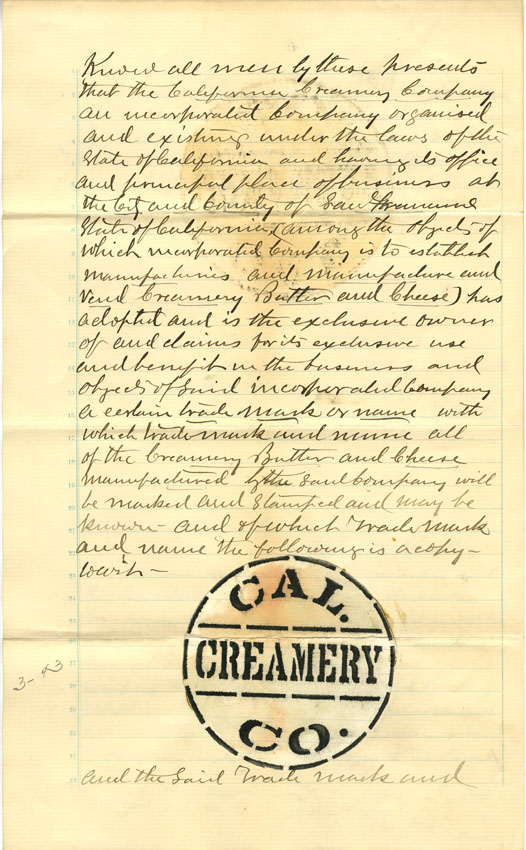 Know all men by these presents
that the California Creamery Company
an incorporated Company organised
and existing under the laws of the
State of California and having its office
and principal place of business at
the City and County of San Francisco
State of California, (among the objects of
which incorporated Company is to establish
manufactories and manufacture and
vend Creamery Butter and Cheese) has
adopted and is the exclusive owner
of and claims for its exclusive use
and benefit in the business and
objects of said incorporated Company
a certain trade mark or name with
which trade mark and name all
of the Creamery Butter and Cheese
manufactured by the said Company will
be marked and stamped and may be
known and of which Trade Mark
and name the following is a copy -
to wit -
CAL.
CREAMERY
CO.
3-43
and the said Trade mark and